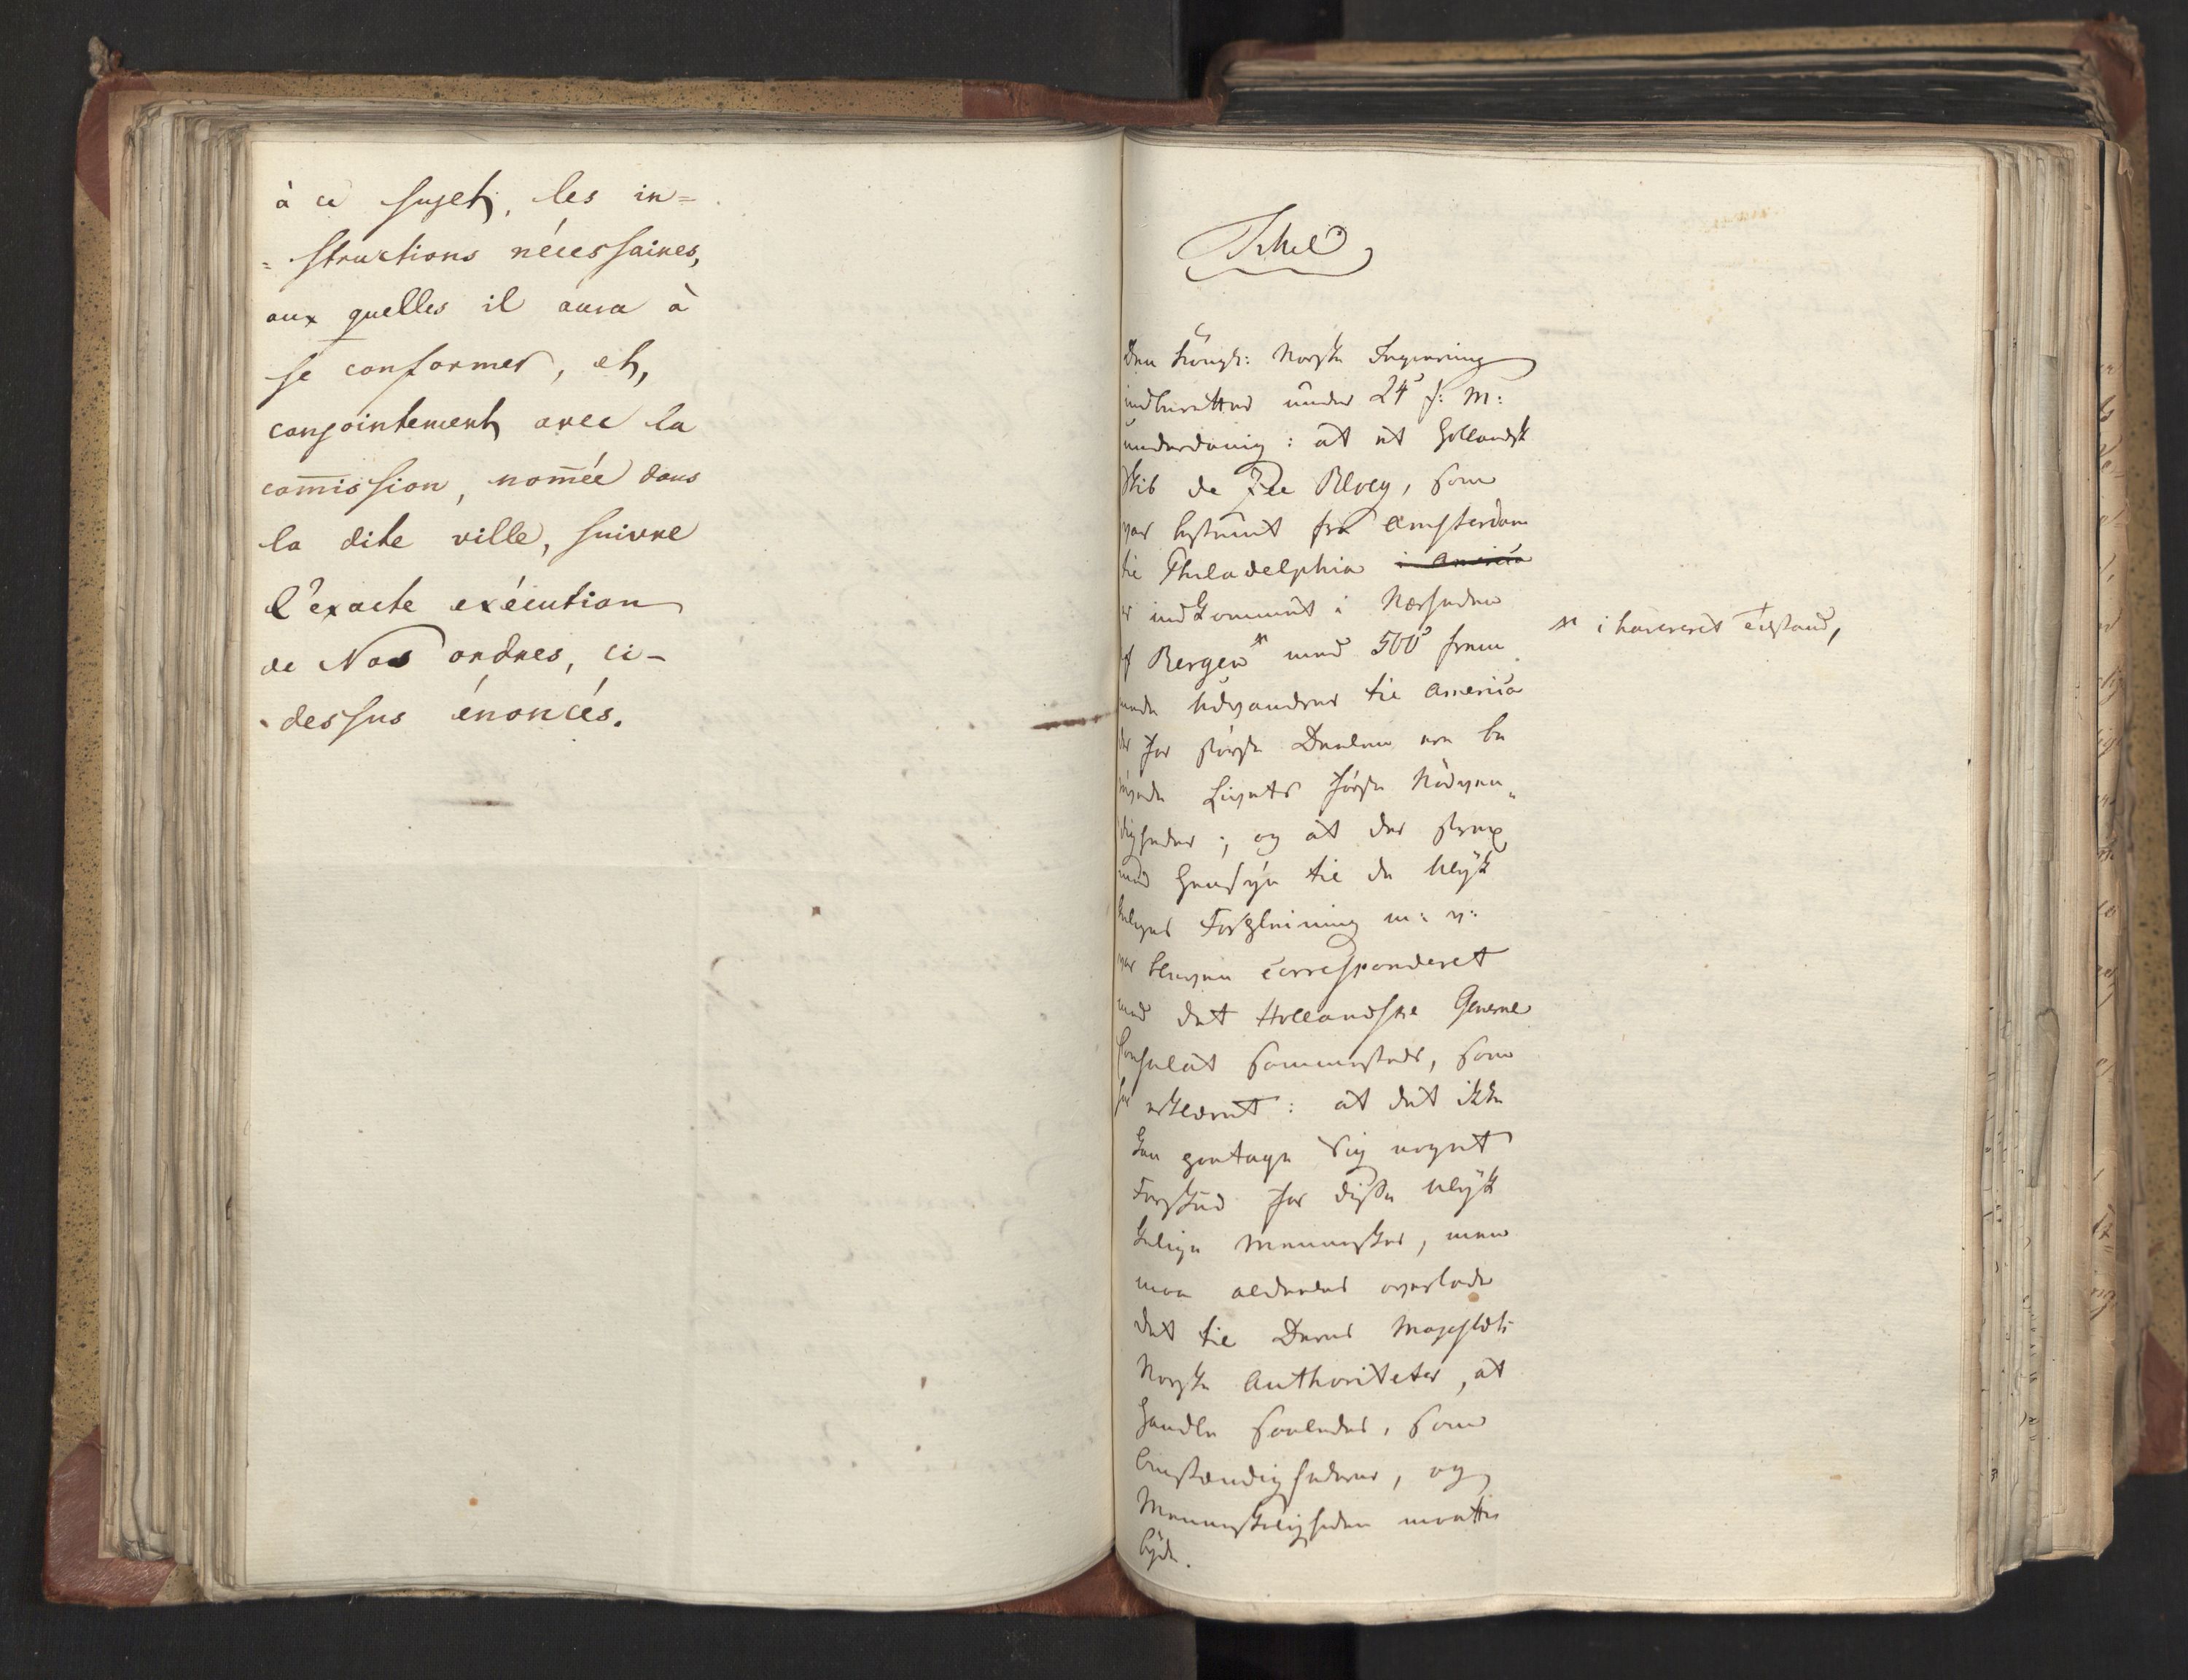 à ce sujet, les in=
=structions nécessaires,
aux quelles il aura à
se conformer, et,
conjointement avec la
com̄ission, nom̄ée dans
la dite ville, suivre
l'exacte exécution
de Nos ordres, ci-
dessus énoncés.
Den Kongl: Norske Regiering
indberetter under 24 f: M:
underdanig: at et Hollandsk
Skib de Zee Ploeg, som
var bestemt fra Amsterdam
til Philadelphia i America
er indkommet i Nærheden
af Bergen med 500 frem
i havereret Tilstand,
mede Udvandrere til America
der for største Deelen ere be
røvede Livets første Nødven„
digheder; og at der strax
med Hensyn til de Ulyk
keliges Forpleining m: v:
var bleven correspondéret
med det Hollandske General
Consulat sammesteds, som
har erklæret: at det ikke
kan paatage sig noget
Forskud for disse Ulyk
kelige Mennesker, men
maa aldeeles overlade
det til Deres Majestæts
Norske Authoriteter, at
handle saaledes, som
Omstændighederne, og
Menneskeligheden maatte
byde.